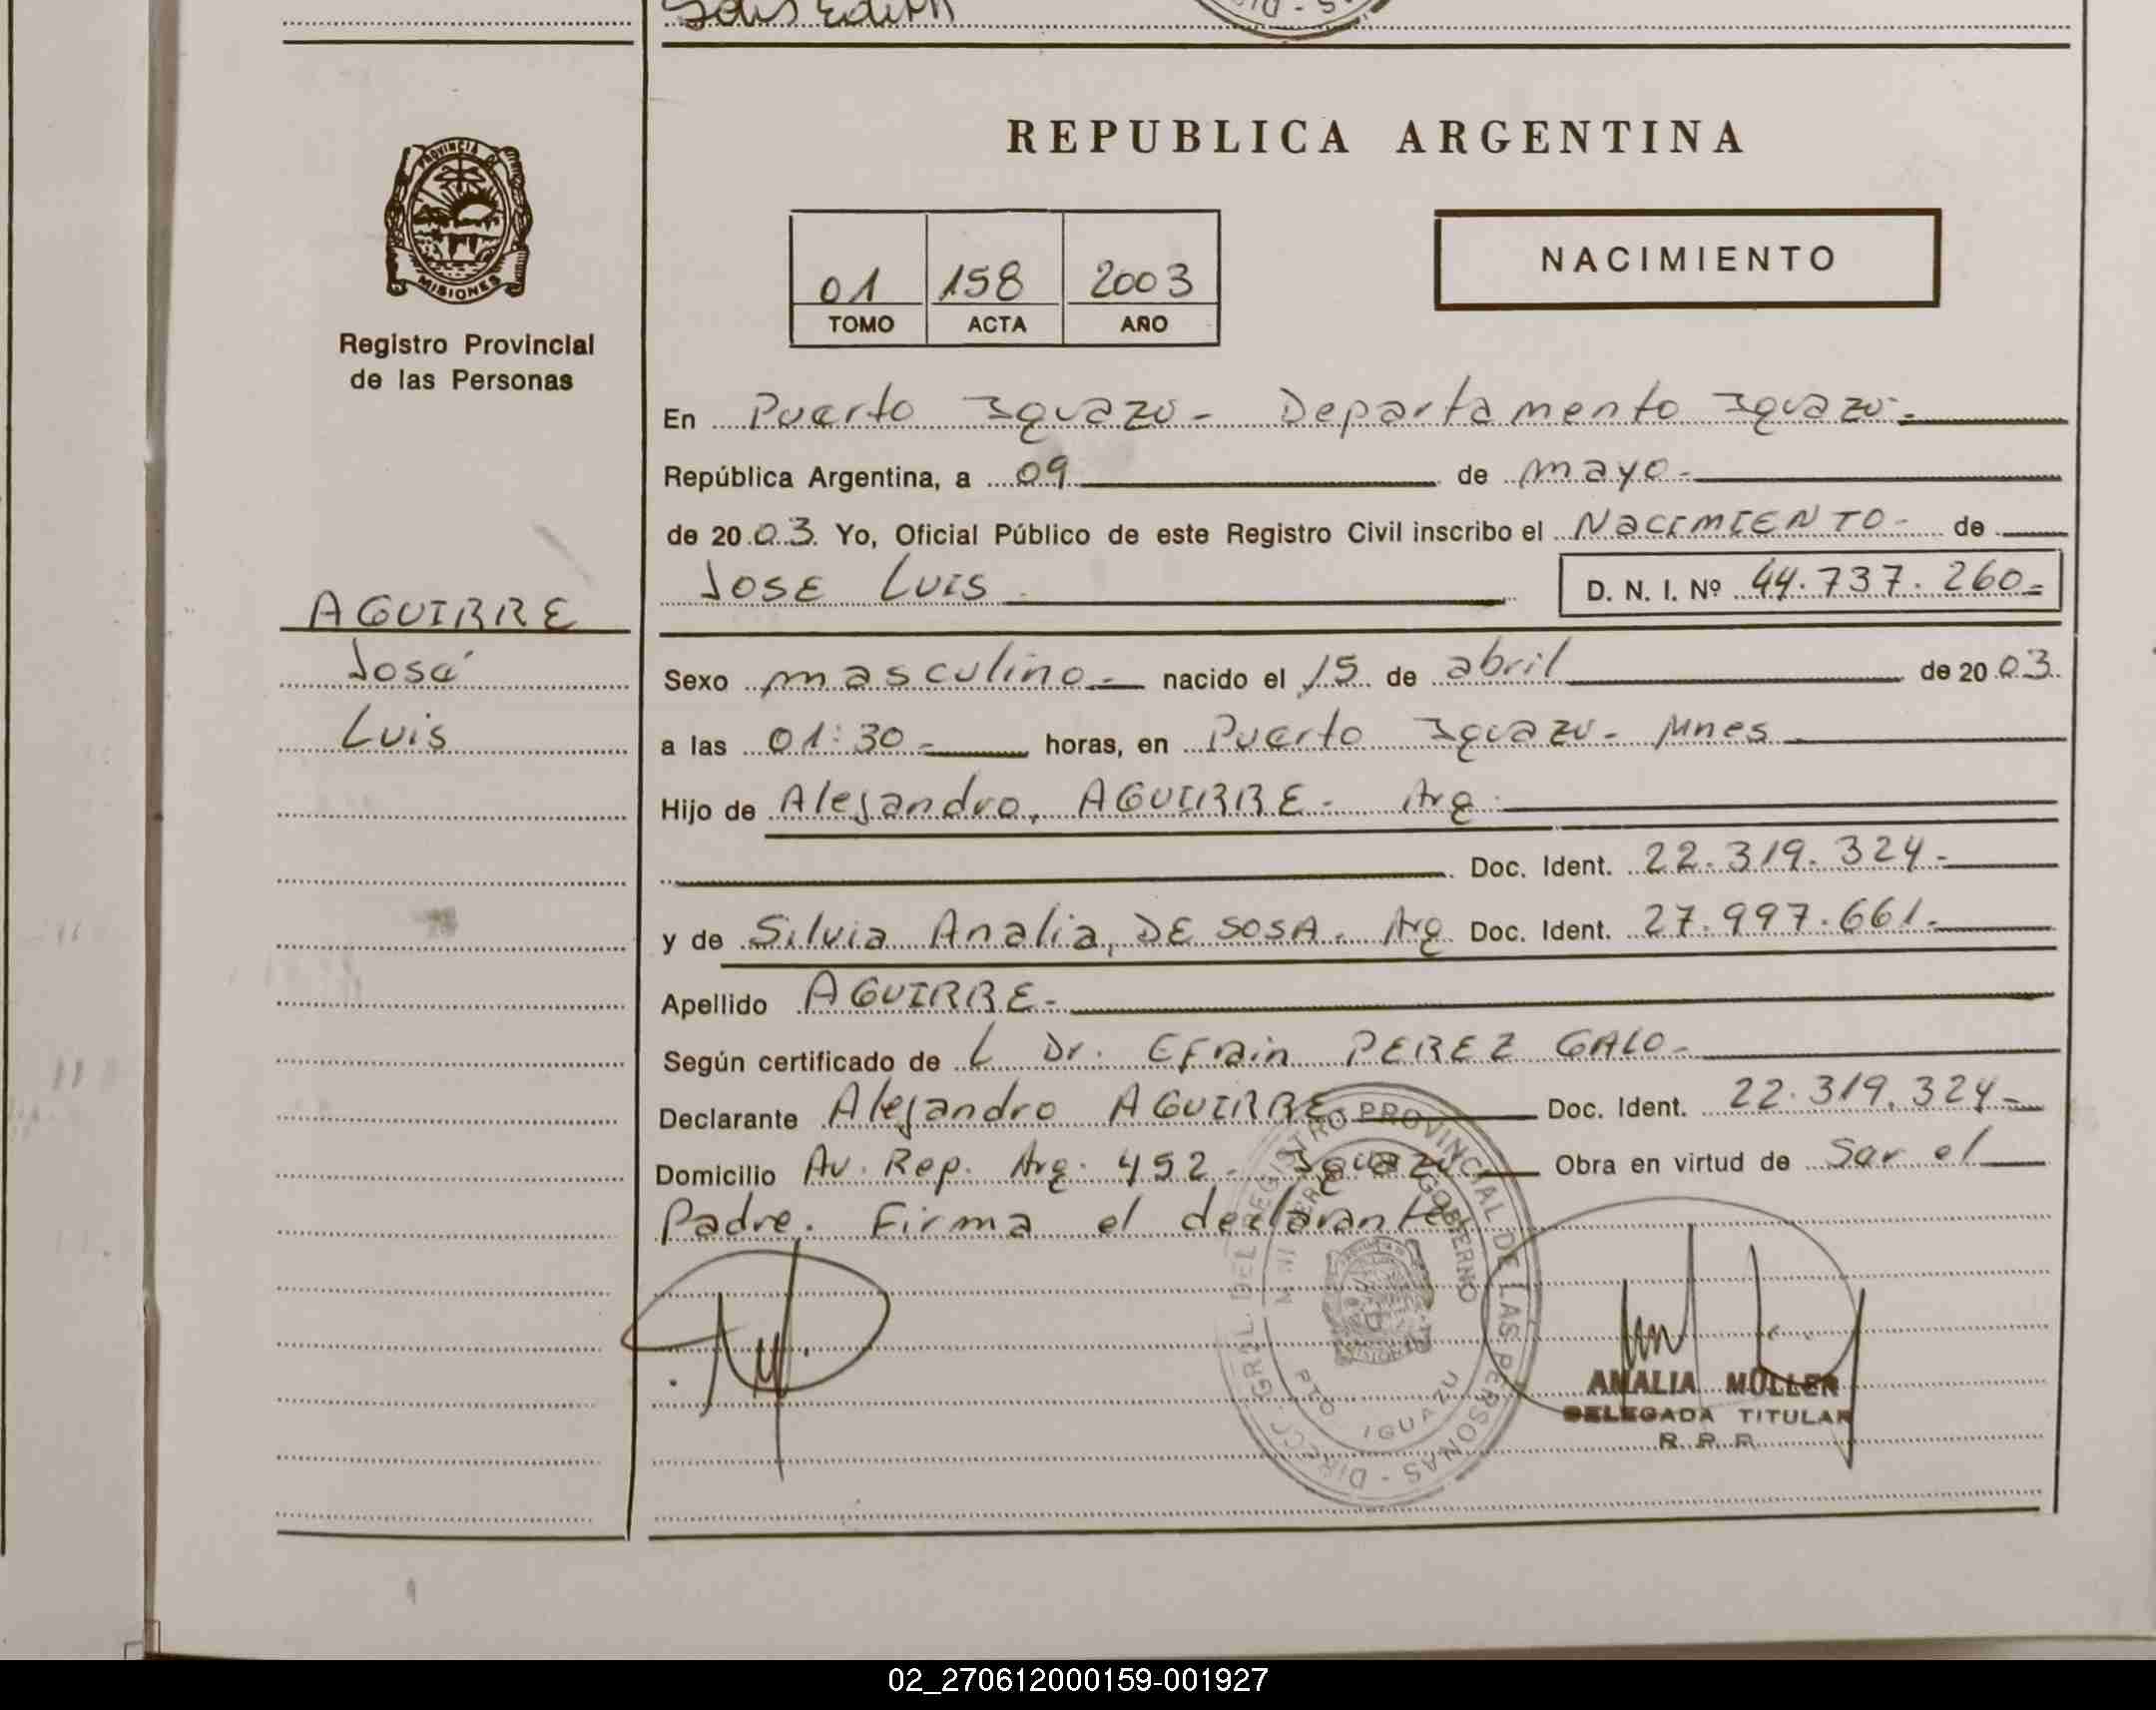 Solis Edith
REPUBLICA ARGENTINA
PROVINCIA DE
MISIONES
Registro Provincial
de las Personas
01 158 2003
TOMO ACTA AÑO
NACIMIENTO
En Puerto Iguazu - Departamento Iguazu -
República Argentina, a 09 de mayo -
de 2003. Yo, Oficial Público de este Registro Civil inscribo el NACIMIENTO - de
JOSE LUIS D. N. I. Nº 44.737.260 -
AGUIRRE
José
Luis
Sexo masculino - nacido el 15 de abril de 2003
a las 01:30 - horas, en Puerto Iguazu - Mnes -
Hijo de Alejandro, AGUIRRE - Arg.
Doc. Ident. 22.319.324 -
y de Silvia Analia, DE SOSA - Arg Doc. Ident. 27.997.661 -
Apellido AGUIRRE -
Según certificado de L Dr. Efrain PEREZ GALO -
Declarante Alejandro AGUIRRE Doc. Ident. 22.319.324 -
Domicilio Av. Rep. Arg. 452 - Iguazu - Obra en virtud de Ser el
Padre. Firma el declarante
DIRECC. GRAL. DEL REGISTRO PROVINCIAL DE LAS PERSONAS -
GOBIERNO
PTO IGUAZU
ANALIA MÜLLER
DELEGADA TITULAR
R. P. P.
02_270612000159-001927